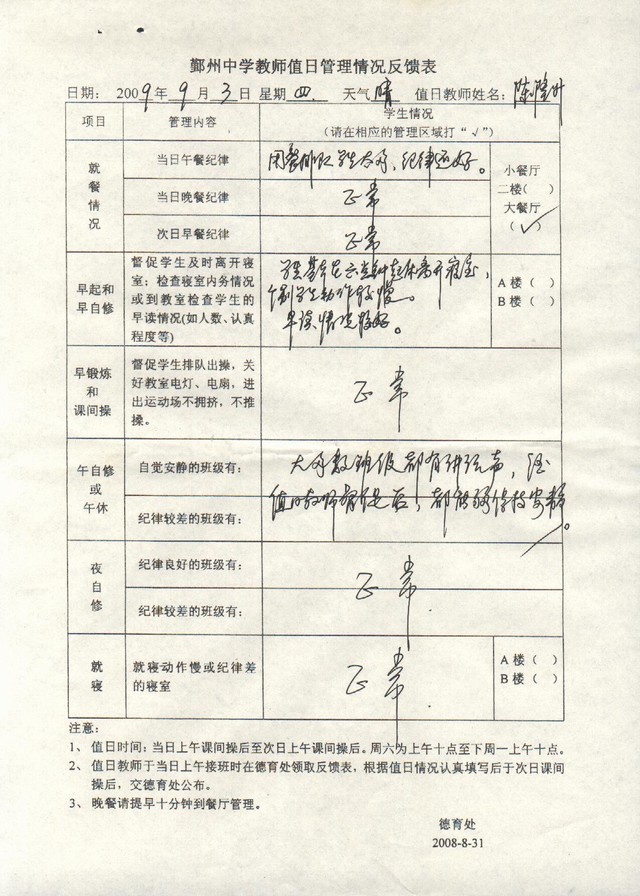 鄞州中学教师值日管理情况反馈表
日期: 2009年9月3日 星期四 天气晴 值日教师姓名:陈
项目 管理内容 学生情况
(请在相应的管理区域打“√”)
就餐情况
当日午餐纪律 纪律还好。
当日晚餐纪律 正常
次日早餐纪律 正常
小餐厅
二楼( )
大餐厅
(√)
早起和
早自修
督促学生及时离开寝
室;检查寝室内务情况
或到教室检查学生的
早读情况(如人数、认真
程度等)
学生基本在六点钟起床离开寝室,
个别学生动作较慢。
早读情况较好。
A楼( )
B楼( )
早锻炼
和
课间操
督促学生排队出操,关
好教室电灯、电扇,进
出运动场不拥挤,不推
搡。
正常
午自修
或
午休
自觉安静的班级有:
纪律较差的班级有:
大多数班级都有讲话声,经
值日教师 后,都能够保持安静。
夜
自
修
纪律良好的班级有:
纪律较差的班级有:
正常
就
寝
就寝动作慢或纪律差
的寝室
正常
A楼( )
B楼( )
注意:
1、 值日时间:当日上午课间操后至次日上午课间操后。周六为上午十点至下周一上午十点。
2、 值日教师于当日上午接班时在德育处领取反馈表,根据值日情况认真填写后于次日课间
操后,交德育处公布。
3、 晚餐请提早十分钟到餐厅管理。
德育处
2008-8-31